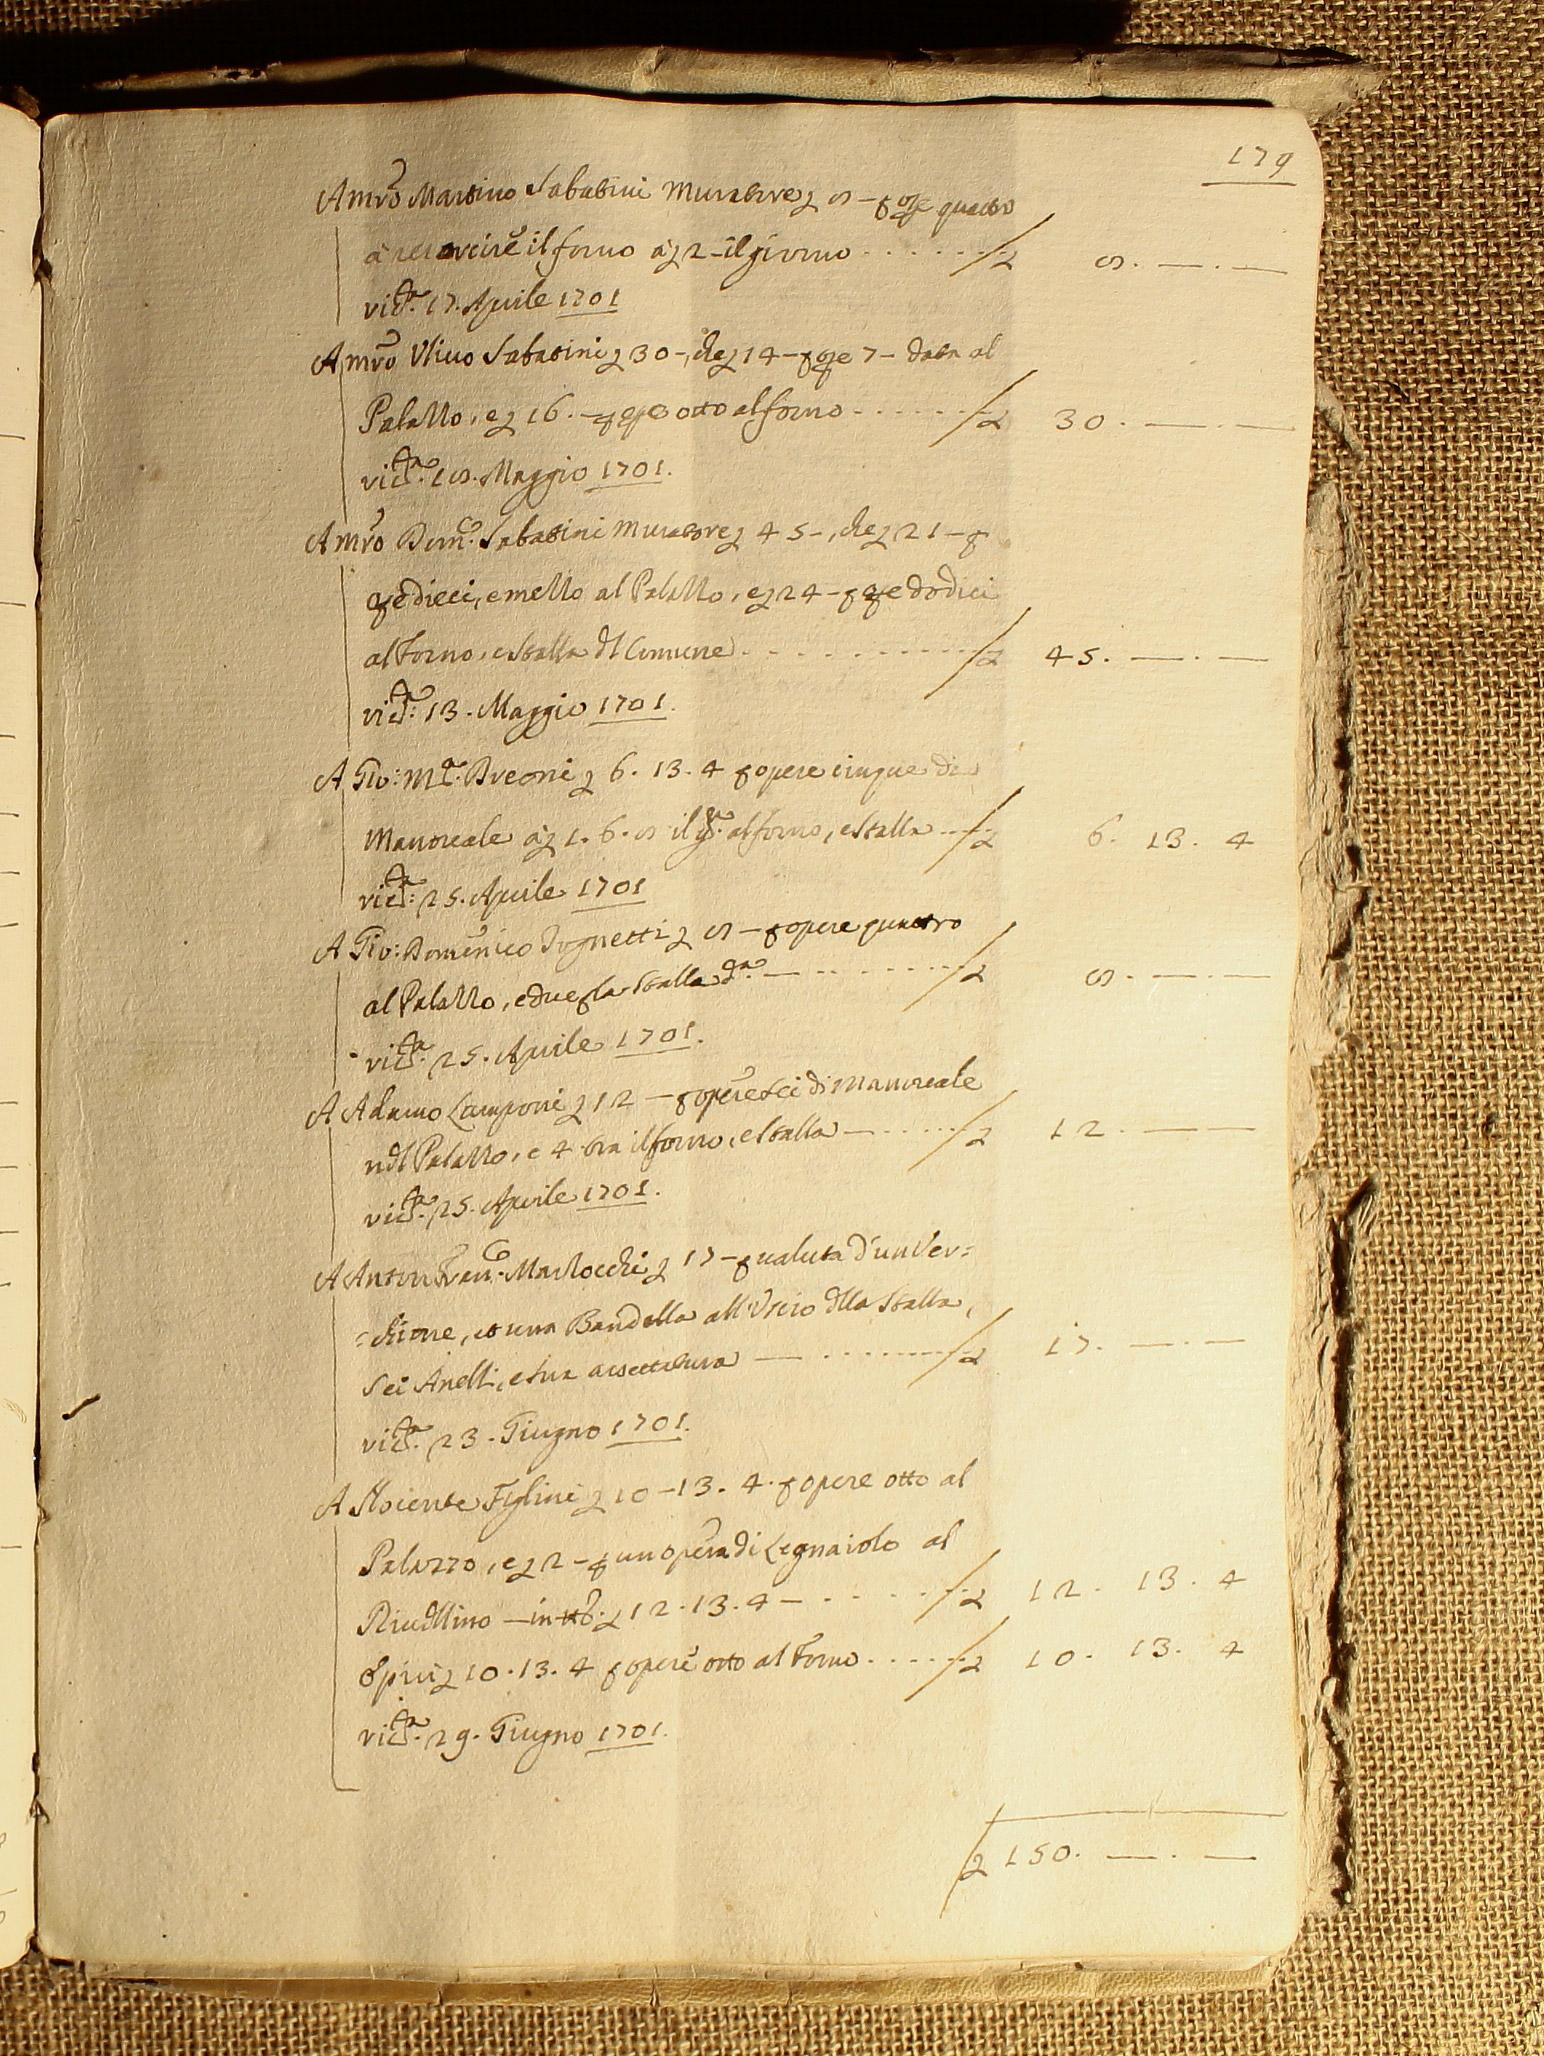 179
A mrõ Martino Sabatini Muratore £ 8 – p oṕe quattro
à resarcire il forno à £ 2 – il giorno . . . . . . £ 8. —. —
17. Aprile 1701
A mrõ Ulivo Sabatini £ 30 –, che £ 14 – p oṕe 7 – date al
Palazzo, e £ 16. – p oṕe otto al forno - - - - - - £ 30. —. —
18. Maggio 1701.
A mrõ Dom.co Sabatini Muratore £ 45 –, che £ 21 – p
oṕe dieci, e mezzo al Palazzo, e £ 24 – p oṕe dodici
al Forno, e Stalla dl Comune . . . . . . . . . £ 45. —. —
13. Maggio 1701.
A Gio: M.a Breoni £ 6. 13. 4 p opere cinque di
Manovale à £ 1. 6. 8 il g.no al forno, e Stalla . . . £ 6. 13. 4
25. Aprile 1701
A Gio: Domẽnico Tognetti £ 8 – p opere quattro
al Palazzo, e due p la Stalla d.a — . . . . . . . £ 8. —. —
25. Aprile 1701.
A Adamo Camponi £ 12 — p opere sei di Manovale
ndl Palazzo, e 4 tra il forno, e Stalla — . . . . . £ 12. —. —
25. Aprile 1701.
A Anton Fran.co Marlocchi £ 17 – p valuta d'un Ver=
=chione, et una Bandella all'Uscio dlla Stalla,
Sei Anelli, e sua assettatura — . . . . . . . . £ 17. —. —
23. Giugno 1701.
A Figlini £ 10 – 13. 4. p opere otto al
Palazzo, e £ 2 – p un opera di Legnaiolo al
Rivellino — in tt.o £ 12. 13. 4 – . . . . . . £ 12. 13. 4
E più £ 10. 13. 4 p opere otto al Forno . . . . . £ 10. 13. 4
29. Giugno 1701.
£ 150. —. —